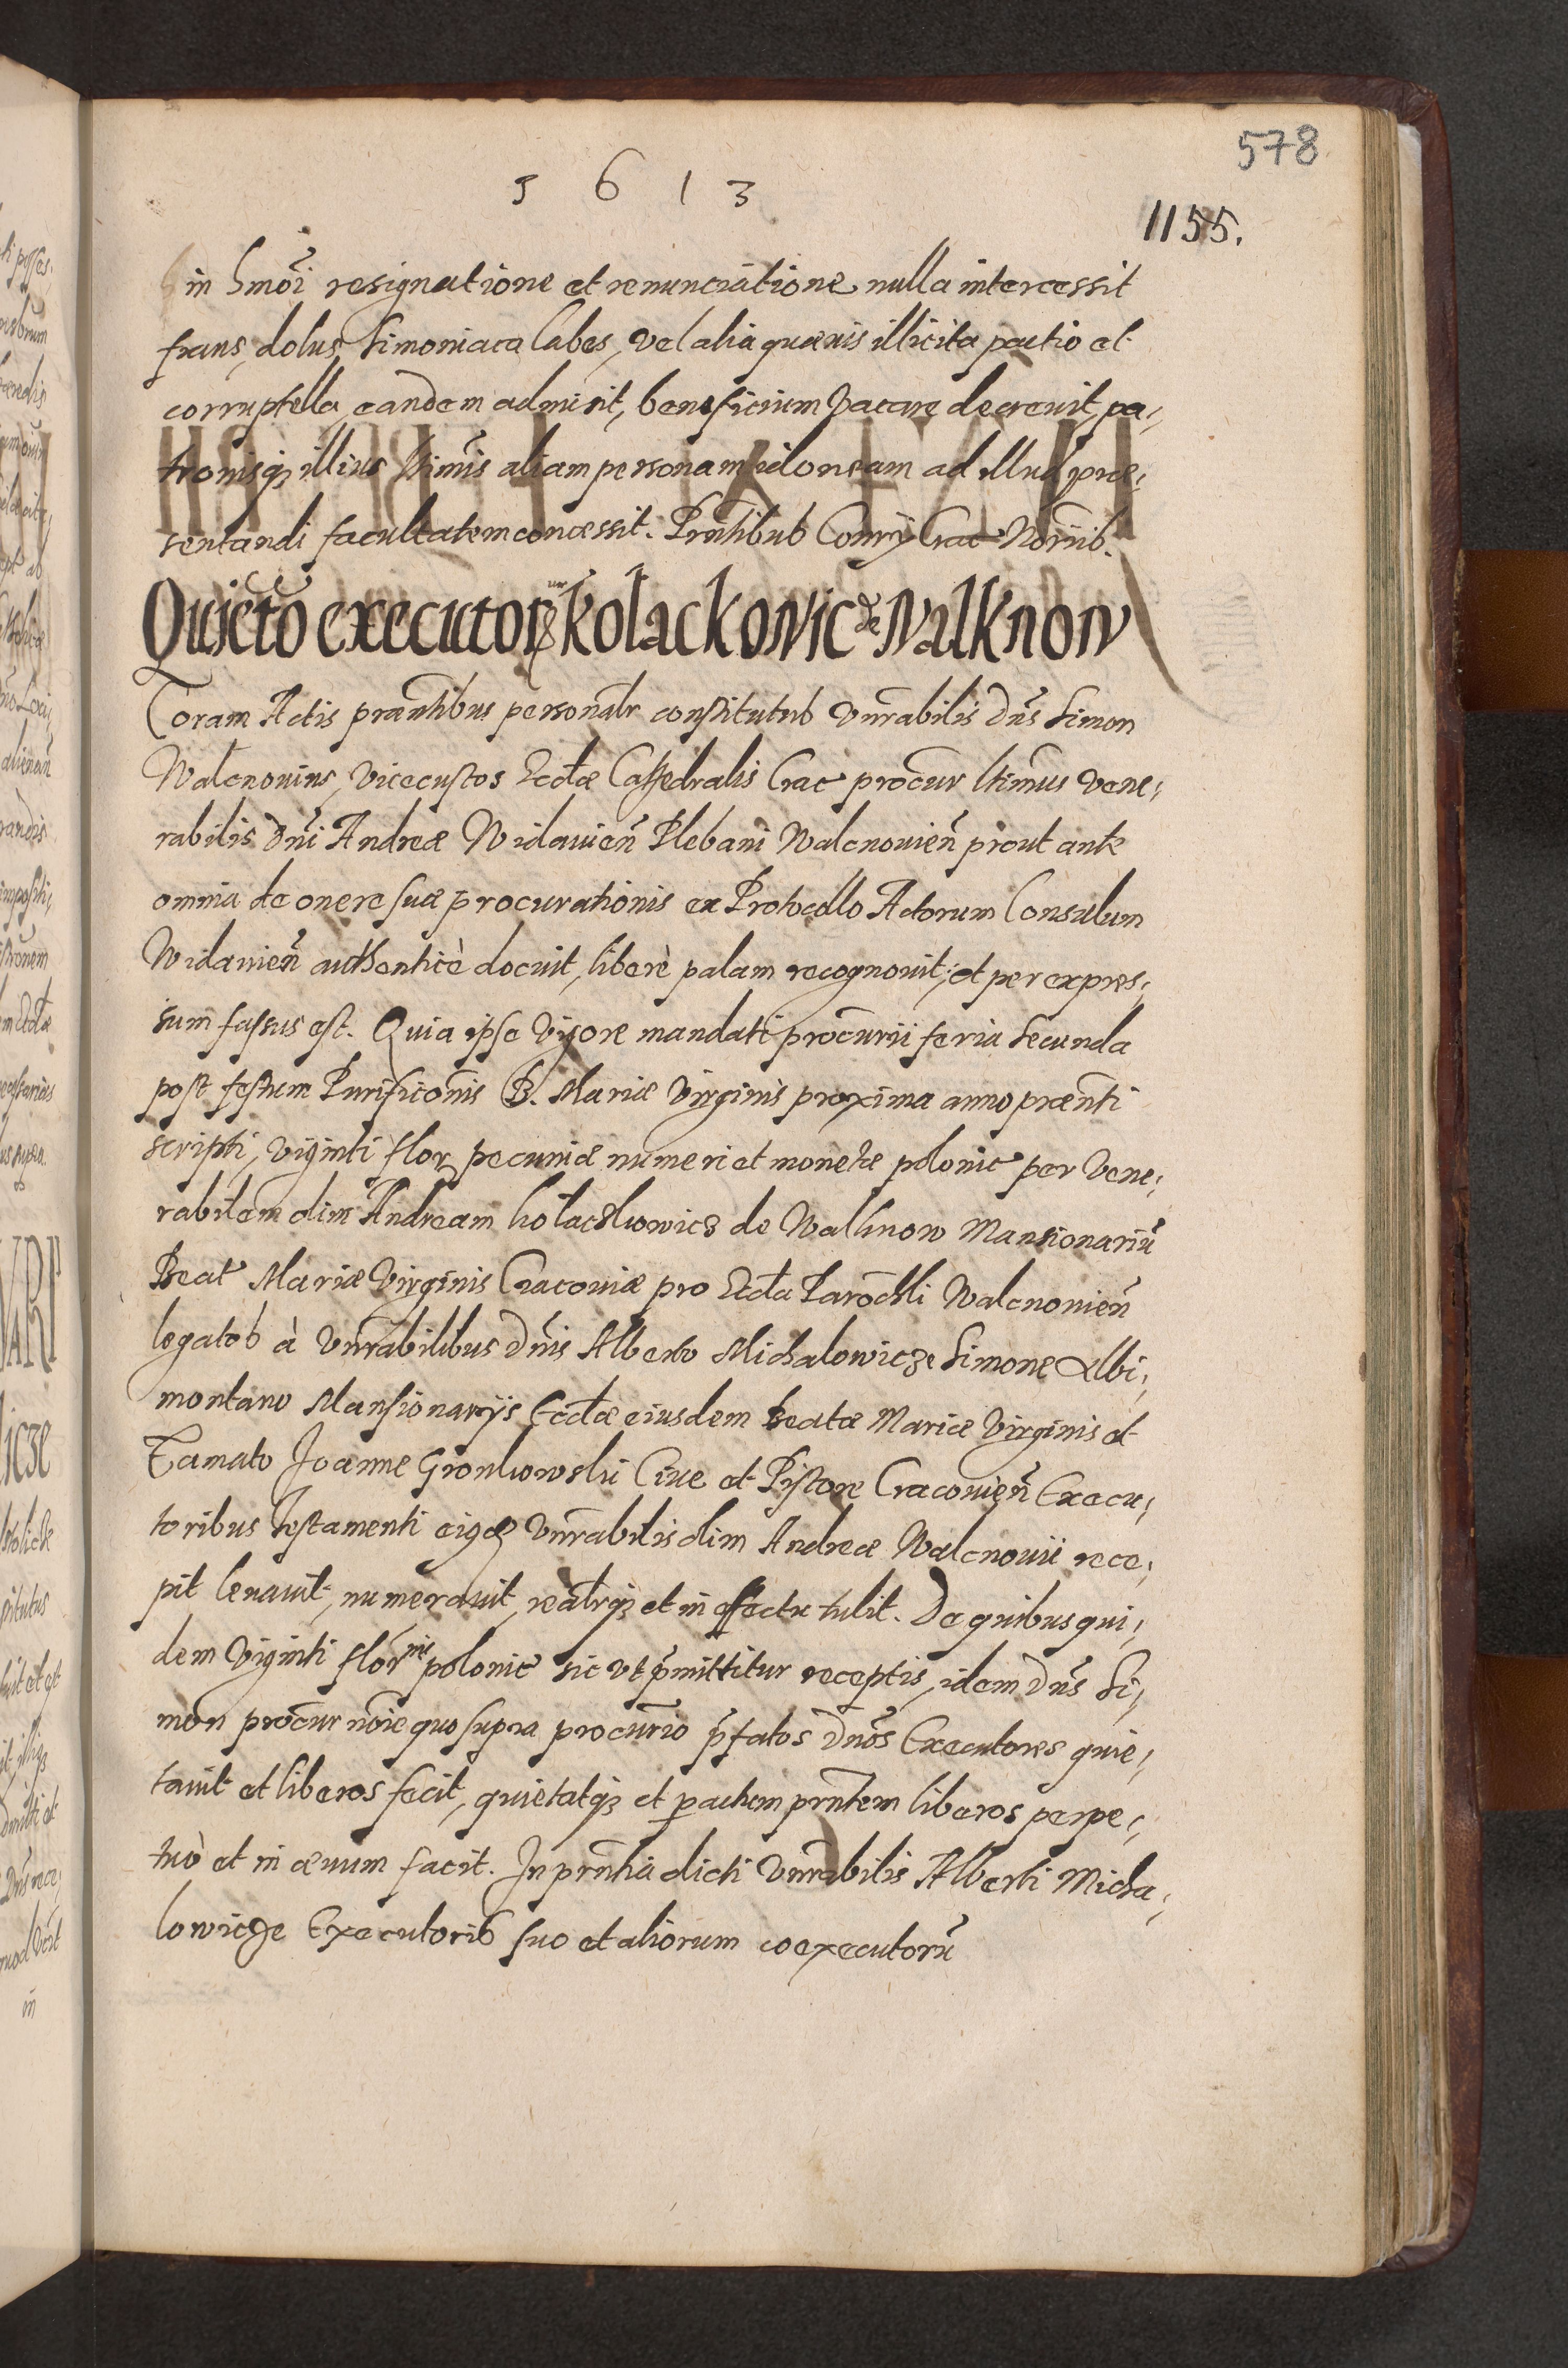 578
5 6 1 3
1155.
in hmoi resignatione et renunciatione nulla intercessit
fraus, dolus, Simoniaca labes, vel alia quævis illicita pactio et
corruptella, eandem admisit, beneficium vacare decrevit, pa,
tronisq3 illius ltimis aliam personam idoneam ad illud præ,
sentandi facultatem concessit. Prntibus Comrÿ Crac Norÿs.
Quieto executor Kolackowic de Walknow
Coram Actis præntibus personalr constitutus Vnrabilis Dns Simon
Walcnovius, Vicecustos Eccłæ Cathedralis Crac procur ltimus vene,
rabilis Dni Andreæ Widavien Plebani Walcnovien prout ante
omnia de onere suæ procurationis ex Protocollo Actorum Consulum
Widavien authenticè docuit, liberè palam recognovit, et per expres,
sum fassus est. Quia ipse vigore mandati procurii feria Secunda
post festum Purificonis B. Mariæ Virginis proxima anno prænti
scripti, viginti flor pecuniæ numeri et monetæ polonic per Vene,
rabilem olim Andream Kołaczkowicz de Walknow Mansionariu
Beat Mariæ Virginis Cracoviæ pro Eccła Parochli Walcnovien
legatos à Vnrabilibus Dnis Alberto Michalowicze Simone Albi,
montano Mansionarÿs Eccłæ eiusdem Beatæ Mariæ Virginis et
Famato Joanne Gronkowski Cive et Pistore Cracovien Execu,
toribus Testamenti eiusdem Vnrabilis olim Andreæ Walcnovii rece,
pit levavit, numeravit, realrq3 et in effectu tulit. De quibus qui,
dem Viginti flornis polonic sic vt pmittitur receptis, idem Dns Si,
mon procur noie quo supra procurio pfatos Dnos Executores quie,
tavit et liberos fecit, quietatq3 et pactum prntem liberos perpe,
tuò et in ævum facit. In prntia dicti Vnrabilis Alberti Micha,
lowicze Executoris suo et aliorum coexecutoru